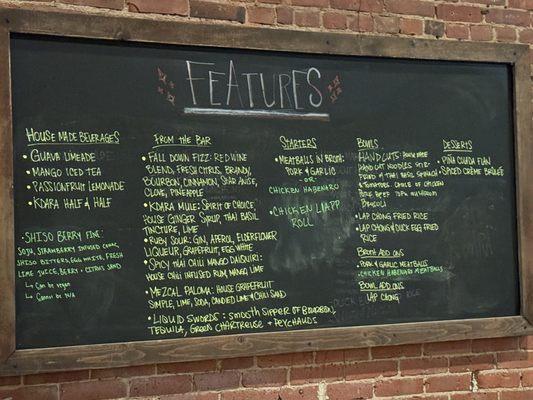 FEATURES
HOUSE MADE BEVERAGES
• GUAVA LIMEADE
• MANGO ICED TEA
• PASSIONFRUIT LEMONADE
• KDARA HALF & HALF
• SHISO BERRY FINE:
SOJU, STRAWBERRY INFUSED
SHISO BITTERS, EGG WHITE, FRESH
LIME JUICE, BERRY + CITRUS SAND
↳ CAN BE VEGAN
↳ CANNOT BE N/A
FROM THE BAR
• FALL DOWN FIZZ: RED WINE
BLEND, FRESH CITRUS, BRANDY,
BOURBON, CINNAMON, STAR ANISE,
CLOVE, PINEAPPLE
• KDARA MULE: SPIRIT OF CHOICE
HOUSE GINGER SYRUP, THAI BASIL
TINCTURE, LIME
• RUBY SOUR: GIN, APEROL, ELDERFLOWER
LIQUEUR, GRAPEFRUIT, EGG WHITE
• SPICY THAI CHILI MANGO DAIQUIRI:
HOUSE CHILI INFUSED RUM, MANGO, LIME
• MEZCAL PALOMA: HOUSE GRAPEFRUIT
SIMPLE, LIME, SODA, CANDIED LIME & CHILI SAND
• LIQUID SWORDS: SMOOTH SIPPER OF BOURBON,
TEQUILA, GREEN CHARTREUSE + PEYCHAUDS
STARTERS
• MEATBALLS IN BROTH:
PORK & GARLIC
-OR-
CHICKEN HABANERO
• CHICKEN LUMPP
ROLL
BOWLS
HAND CUTS:
HAND CUT NOODLES STIR-
FRIED & THAI BASIL
& TOMATOES. CHOICE OF CHICKEN
PORK BEEF TOFU MUSHROOM
BROCCOLI
• LAP CHONG FRIED RICE
• LAP CHONG & DUCK EGG FRIED
RICE
BROTH ADD ONS
• PORK & GARLIC MEATBALLS
• CHICKEN HABANERO MEATBALLS
BOWL ADD ONS
LAP CHONG
DESSERTS
• PIÑA COLADA FLAN
• SPICED CRÈME BRÛLÉE